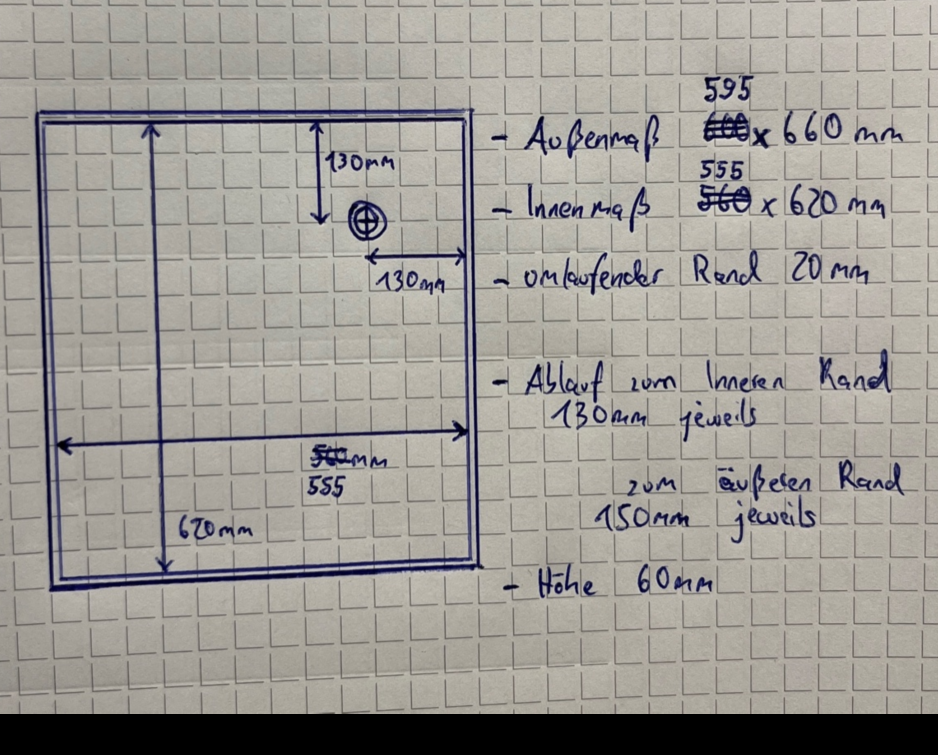 595
- Außenmaß 600 x 660 mm
555
- Innenmaß 560 x 620 mm
- umlaufender Rand 20 mm
- Ablauf zum Inneren Rand
130mm jeweils
zum äußeren Rand
150mm jeweils
- Höhe 60mm
130mm
130mm
560mm
555
620mm